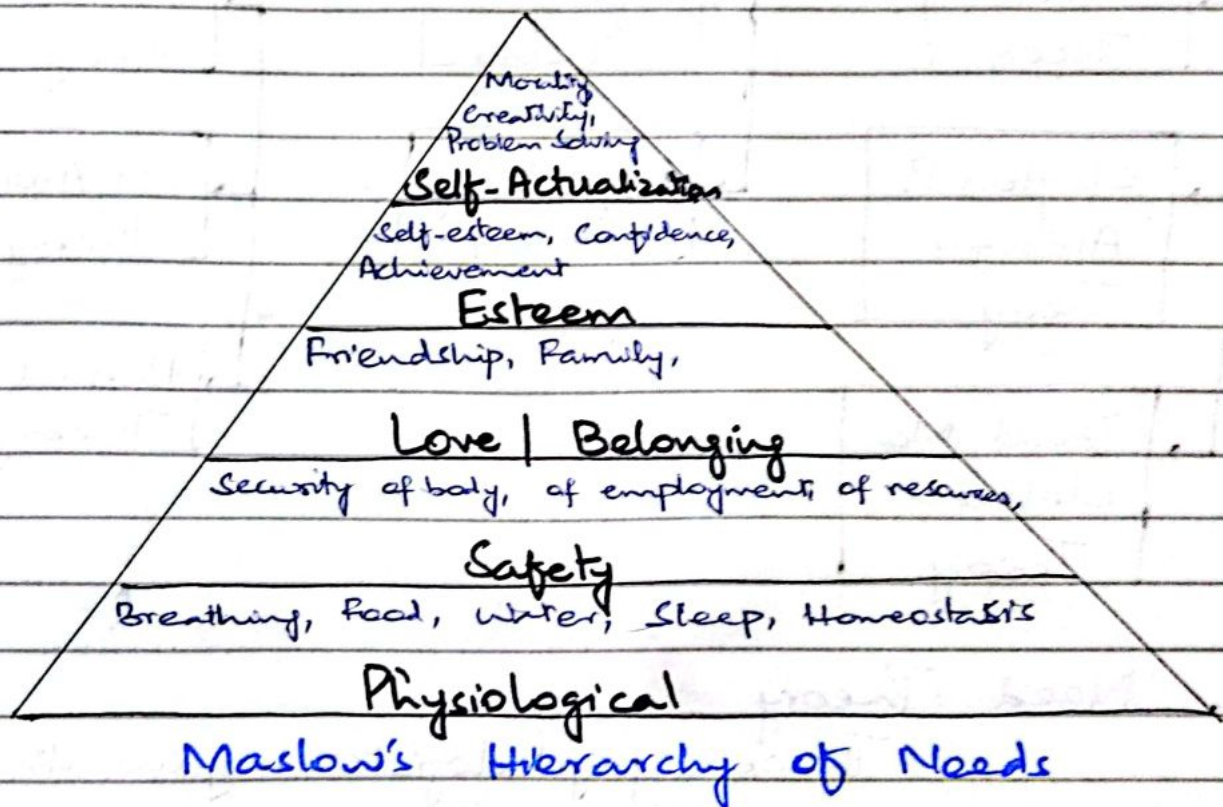 Morality
Creativity,
Problem Solving
Self-Actualization
Self-esteem, Confidence,
Achievement
Esteem
Friendship, Family,
Love | Belonging
Security of body, of employment, of resources,
Safety
Breathing, Food, Water, Sleep, Homeostasis
Physiological
Maslow's Hierarchy of Needs